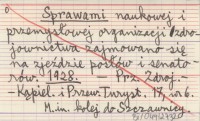 Sprawami naukowej i
przemysłowej organizacji Uzdro-
jownictwa zajmowano się
na zjeździe posłów i senato-
rów. 1928. – Prz. Zdroj.-
-Kąpiel. i Przew. Turyst. 17, nr 6.
M.in. kolej do Szczawnicy.